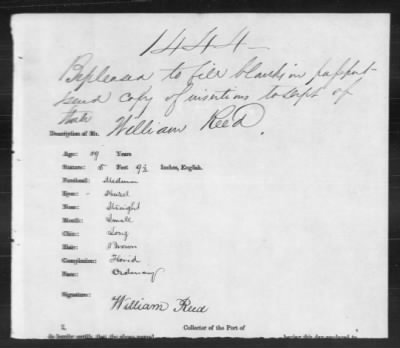 1444
Be pleased to fill blanks in passport
send copy of insertions to Dept of
State
Description of Mr. William Reed.
Age: 39 Years
Stature: 5 Feet 9½ Inches, English.
Forehead: Medium
Eyes: Hazel
Nose: Straight
Mouth: Small
Chin: Long
Hair: Brown
Complexion: Florid
Face: Ordinary
Signature:
William Reed
I, Collector of the Port of
do hereby certify, that the above named having this day produced to